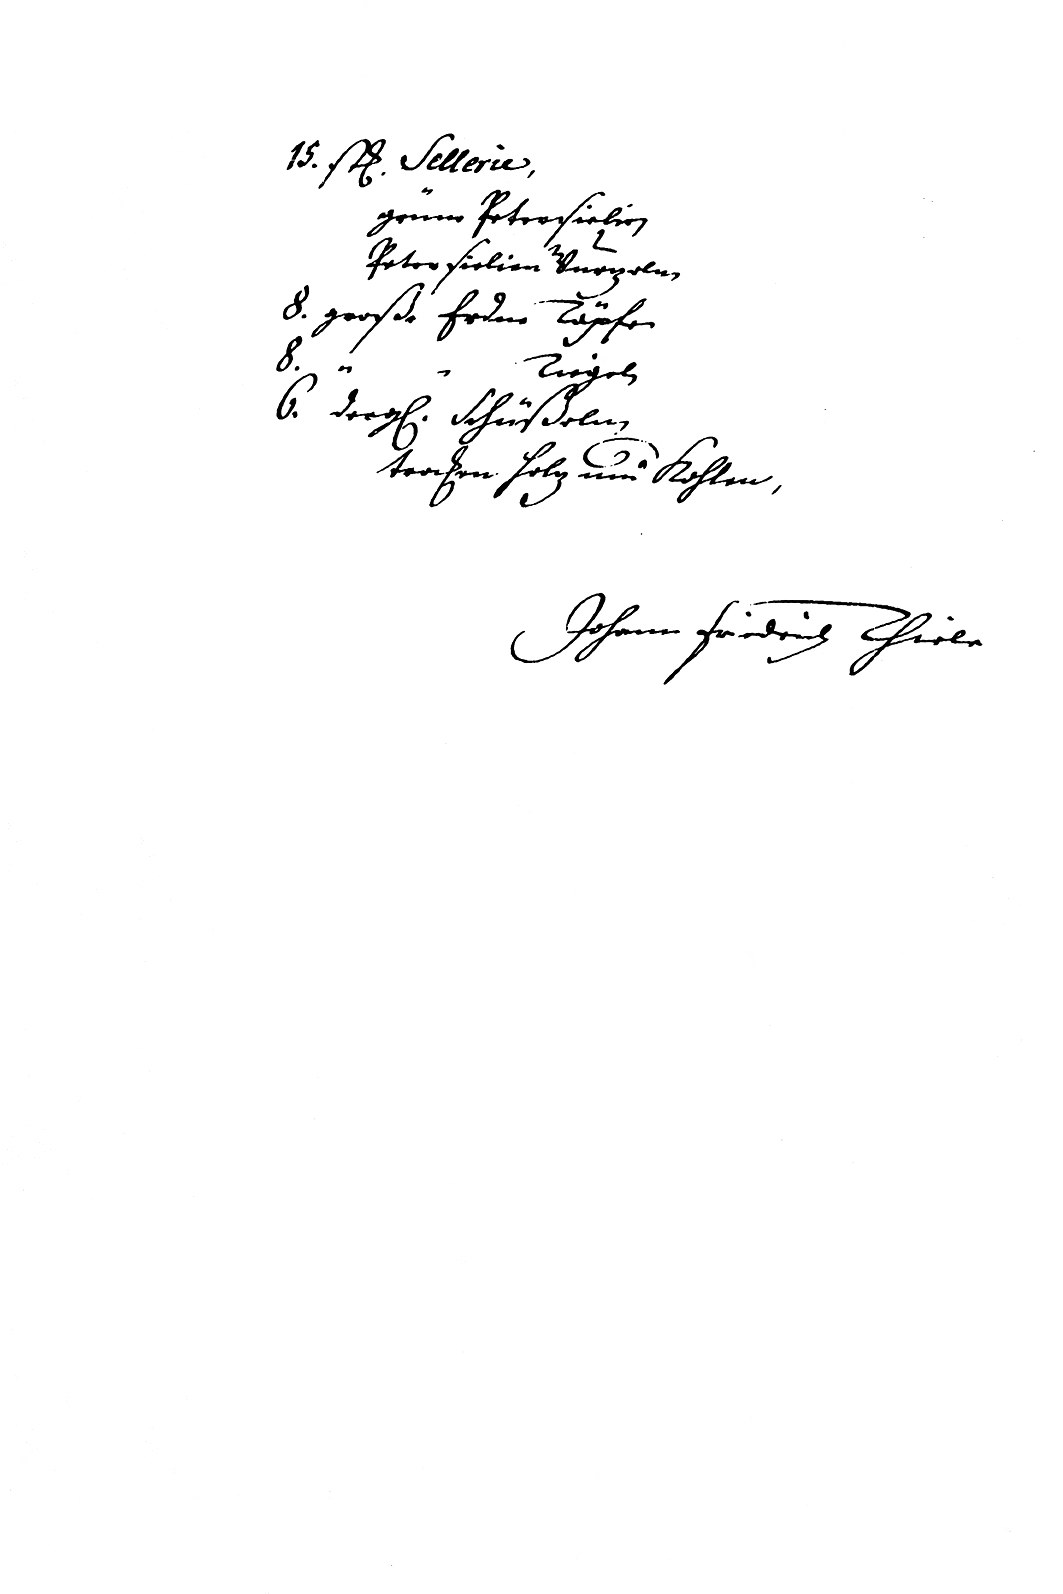 15. stk. Sellerie,
grüne Petersielie,
Petersielien Wurzeln,
8. große Erdne Töpfe
8. " " Tiegel,
6. dergl. Schüßeln,
trocken Holz und Kohlen,
Johann Friedrich Thiele